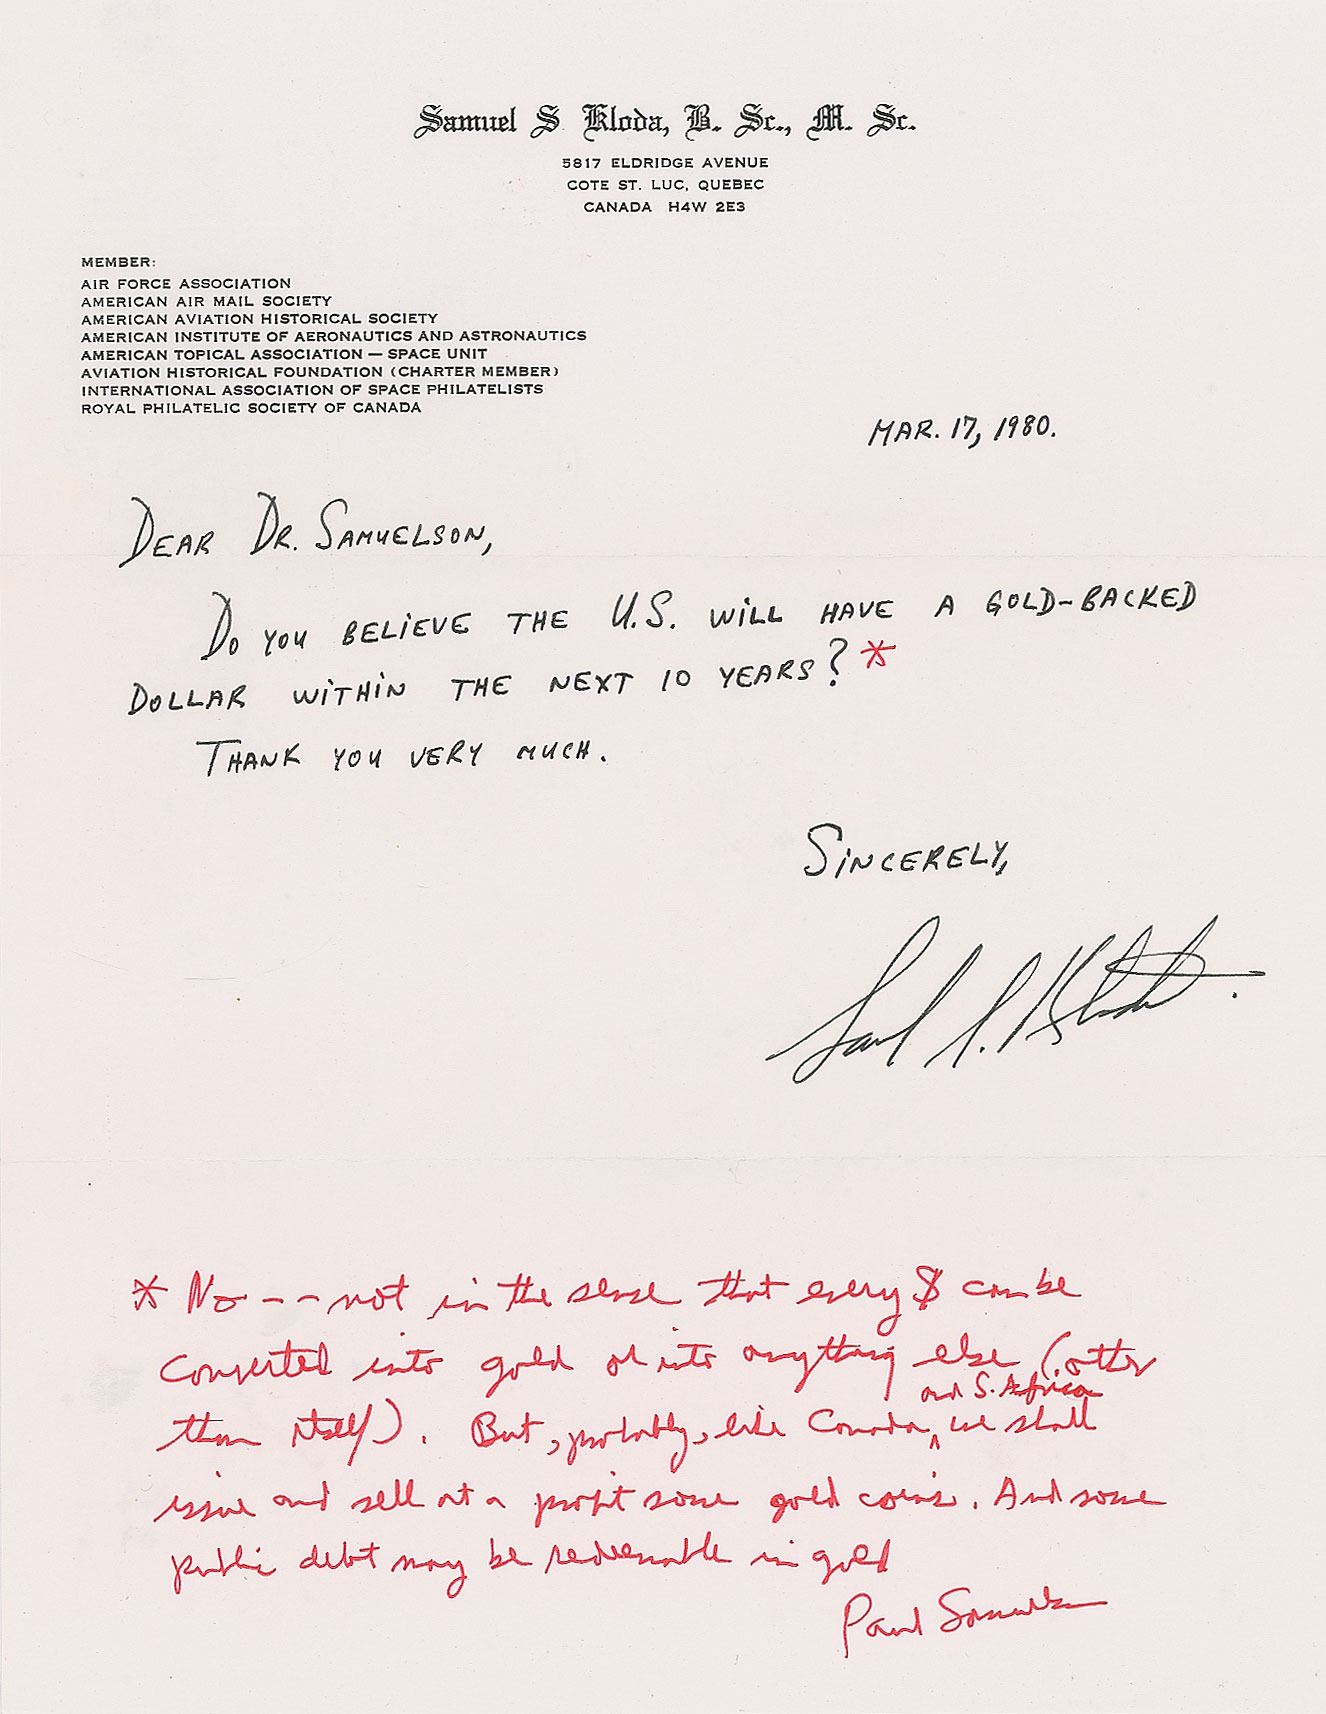 Samuel S. Kloda, B. Sc., M. Sc.
5817 ELDRIDGE AVENUE
COTE ST. LUC, QUEBEC
CANADA H4W 2E3
MEMBER:
AIR FORCE ASSOCIATION
AMERICAN AIR MAIL SOCIETY
AMERICAN AVIATION HISTORICAL SOCIETY
AMERICAN INSTITUTE OF AERONAUTICS AND ASTRONAUTICS
AMERICAN TOPICAL ASSOCIATION — SPACE UNIT
AVIATION HISTORICAL FOUNDATION (CHARTER MEMBER)
INTERNATIONAL ASSOCIATION OF SPACE PHILATELISTS
ROYAL PHILATELIC SOCIETY OF CANADA
MAR. 17, 1980.
DEAR DR. SAMUELSON,
DO YOU BELIEVE THE U.S. WILL HAVE A GOLD-BACKED
DOLLAR WITHIN THE NEXT 10 YEARS? *
THANK YOU VERY MUCH.
SINCERELY,
Saml S. Kloda.
* No -- not in the sense that every $ can be
converted into gold or into anything else (other
than itself). But, probably, like Canada, and S. Africa we shall
issue and sell at a profit some gold coins. And some
public debt may be redeemable in gold
Paul Samuelson